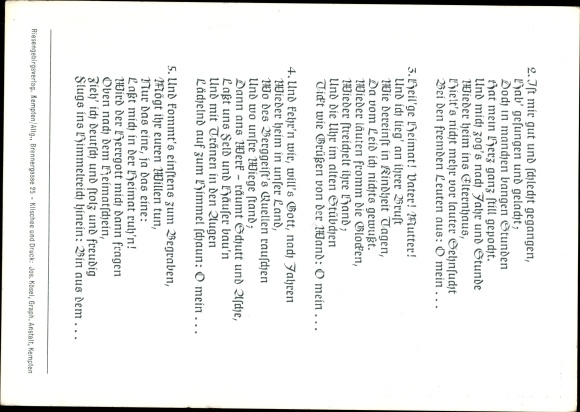 2. Ist mir gut und schlecht gegangen,
Hab' gesungen und gelacht;
Doch in manchen bangen Stunden
Hat mein Herz ganz still gepocht.
Und mich zog's nach Jahr und Stunde
Wieder heim ins Elternhaus,
Hielt's nicht mehr vor lauter Sehnsucht
Bei den fremden Leuten aus: O mein . . .
3. Heil'ge Heimat! Vater! Mutter!
Und ich lieg' an ihrer Brust
Wie dereinst in Kindheit Tagen,
Da vom Leid ich nichts gewußt.
Wieder läuten fromm die Glocken,
Wieder streichelt ihre Hand;
Und die Uhr im alten Stübchen
Tickt wie Grüßen von der Wand: O mein . . .
4. Und kehr'n wir, will's Gott, nach Jahren
Wieder heim in unser Land,
Wo des Berggeist's Quellen rauschen
Und wo unsre Wiege stand;
Dann ans Werk – räumt Schutt und Asche,
Laßt uns Feld und Häuser bau'n
Und mit Tränen in den Augen
Lächelnd auf zum Himmel schaun: O mein . . .
5. Und kommt's einstens zum Begraben,
Mögt ihr euren Willen tun,
Nur das eine, ja das eine:
Laßt mich in der Heimat ruh'n!
Wird der Herrgott mich dann fragen
Oben nach dem Heimatschein,
Zieh' ich deutsch und stolz und freudig
Flugs ins Himmelreich hinein: Bin aus dem . . .
Riesengebirgsverlag, Kempten/Allg., Brennergasse 25 – Klischee und Druck: Jos. Kösel, Graph. Anstalt, Kempten